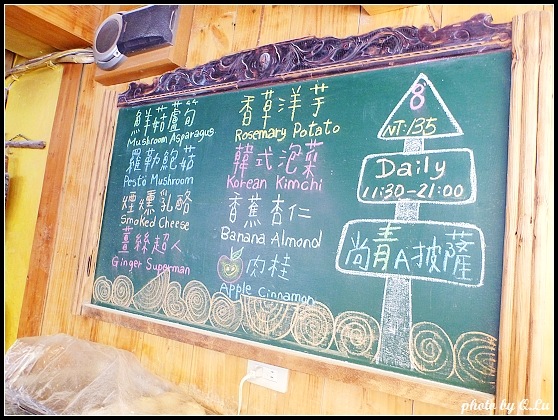 鮮菇蘆筍
Mushroom Asparagus
羅勒鮑菇
Pesto Mushroom
煙燻乳酪
Smoked Cheese
薑絲超人
Ginger Superman
香草洋芋
Rosemary Potato
韓式泡菜
Korean Kimchi
香蕉杏仁
Banana Almond
肉桂
Apple Cinnamon
8
NT:135
Daily
11:30-21:00
尚青A披薩
photo by Q.Lu